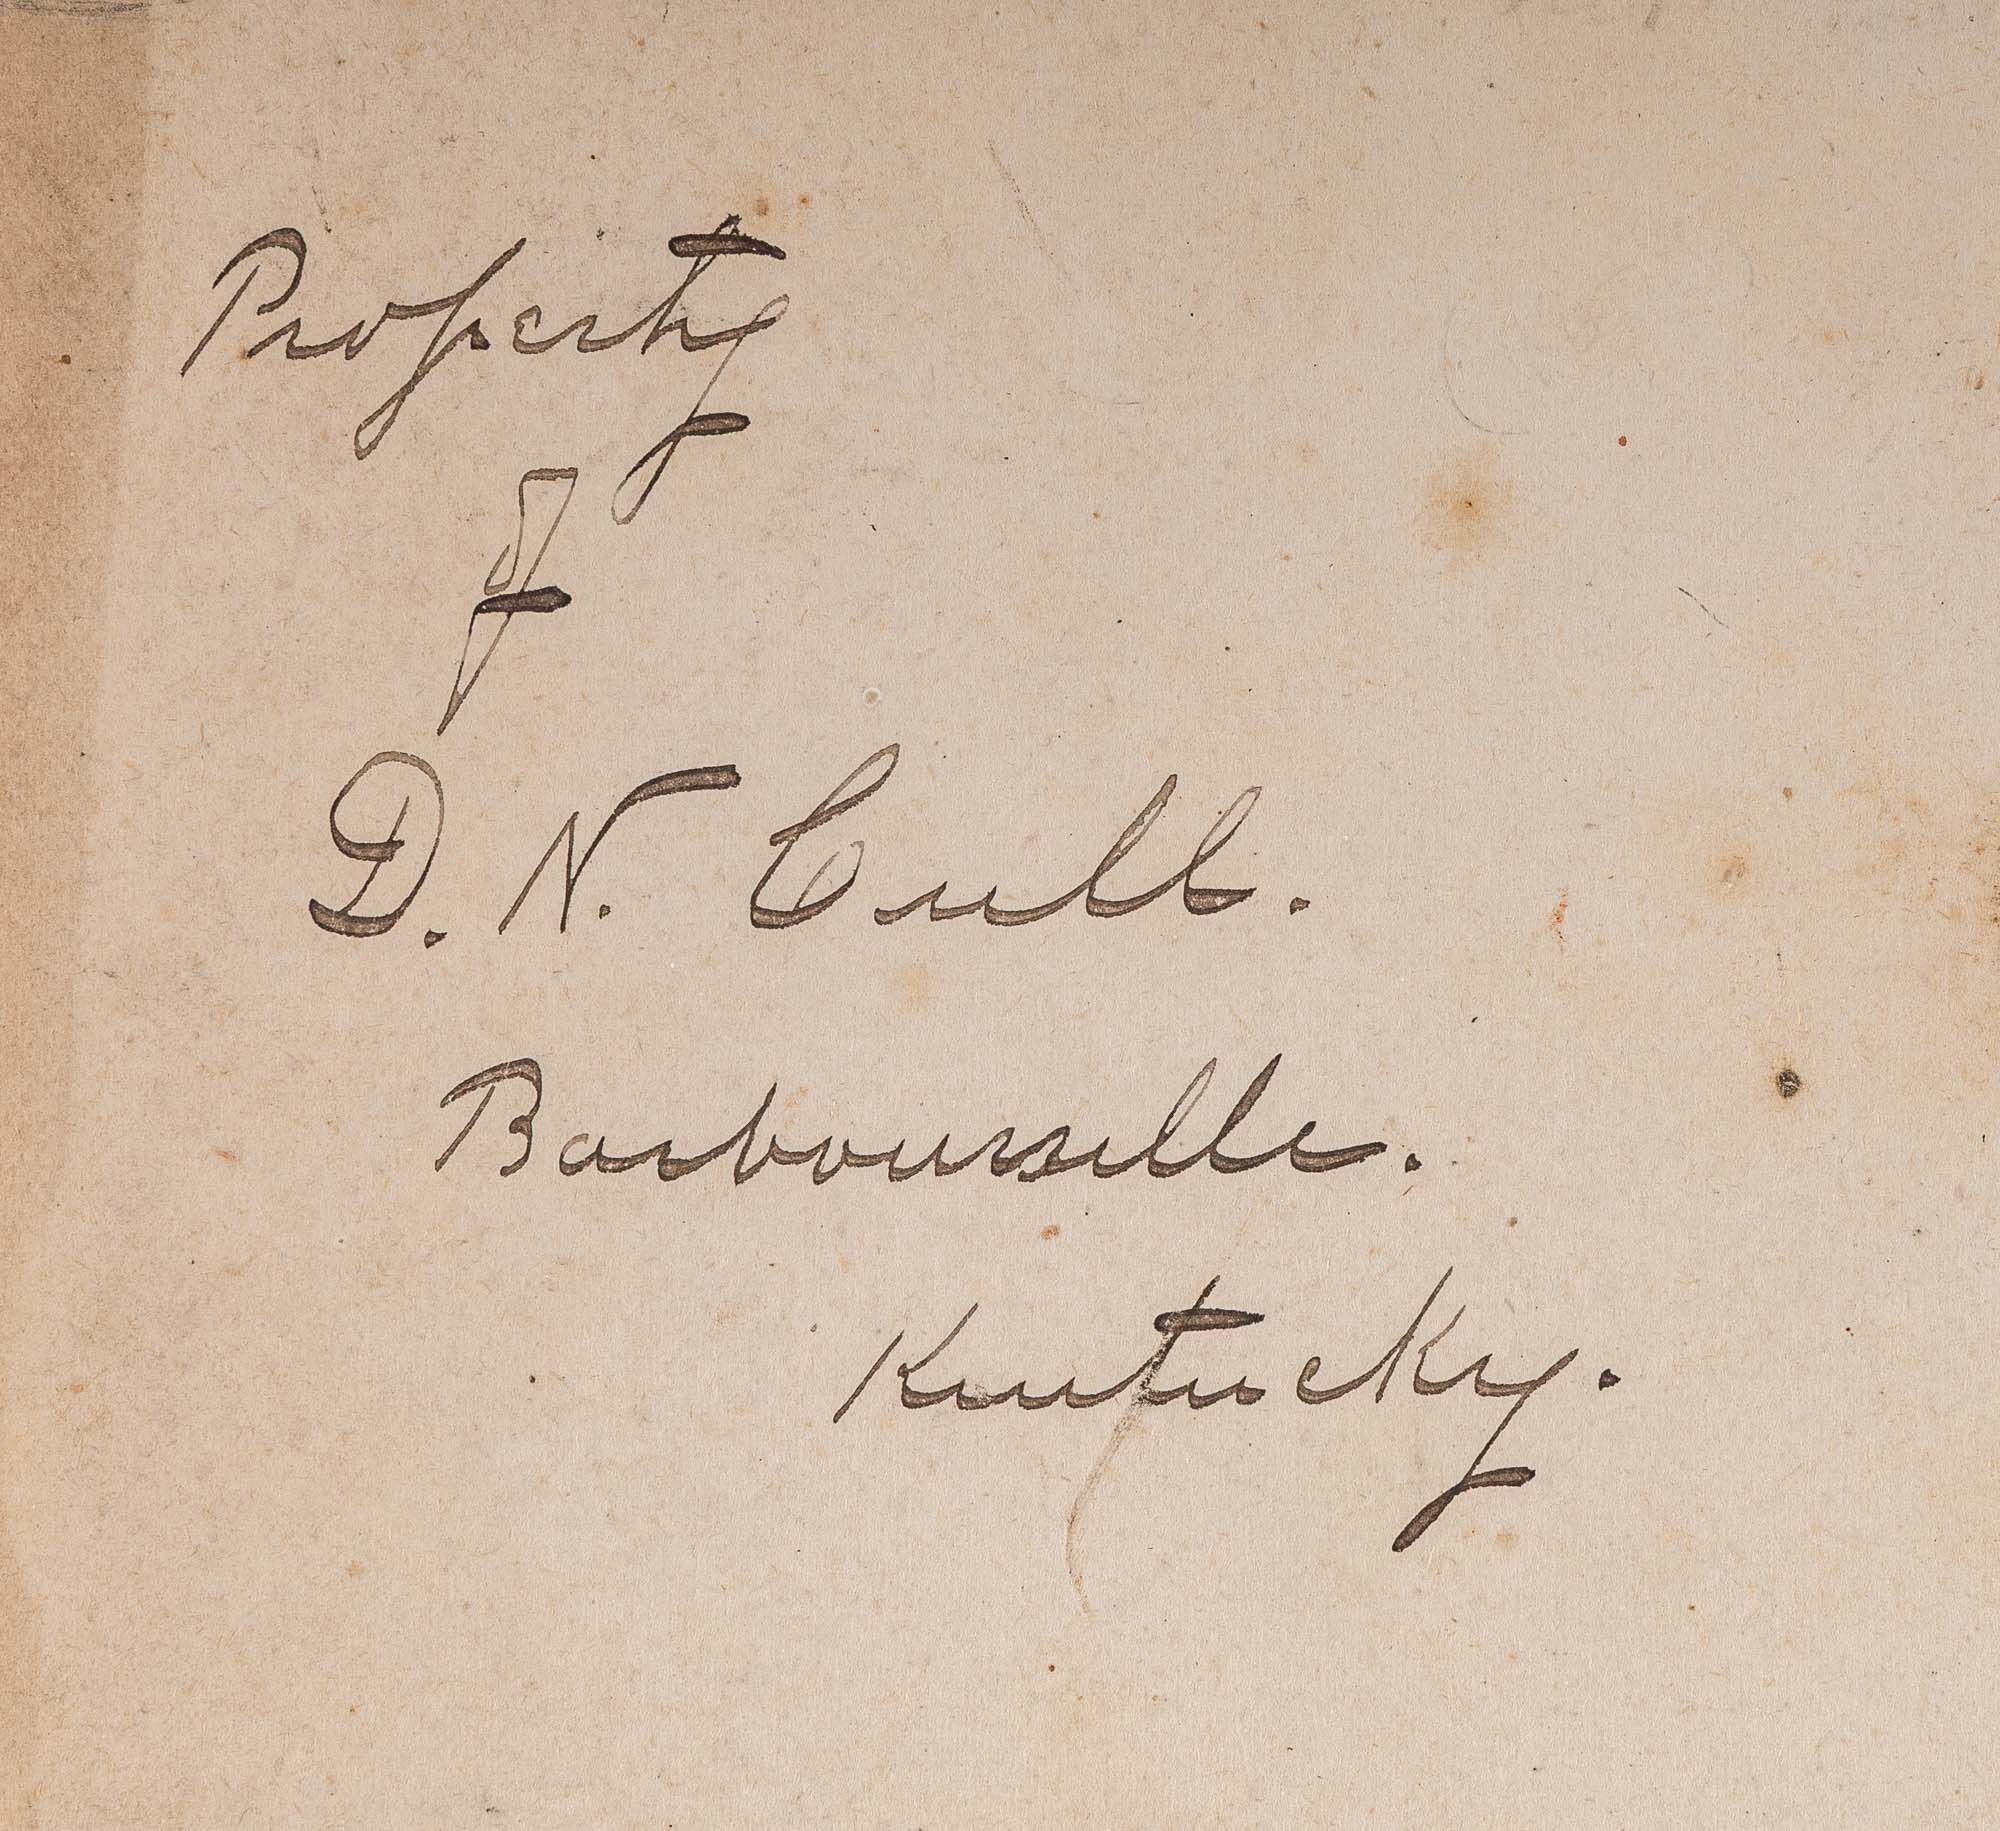 Property
of
D. N. Cull.
Barboursille.
Kentucky.